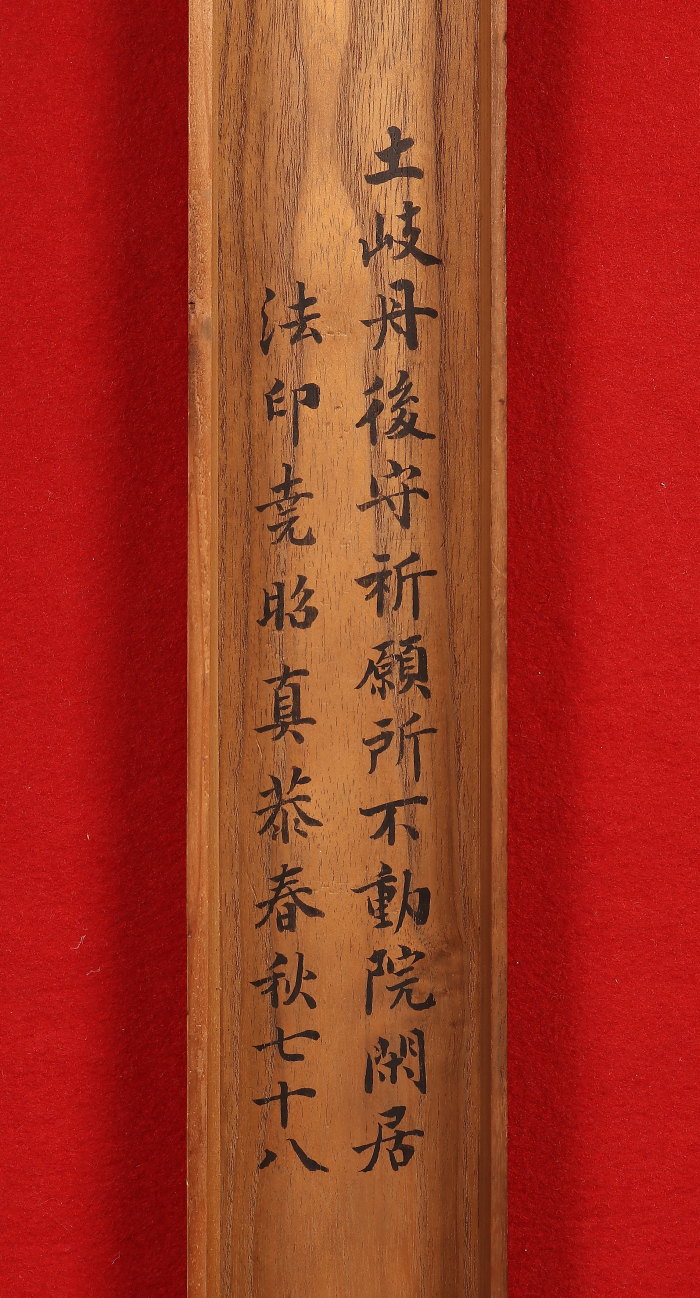 土岐丹後守祈願所不動院閑居
法印尭昭真恭春秋七十八